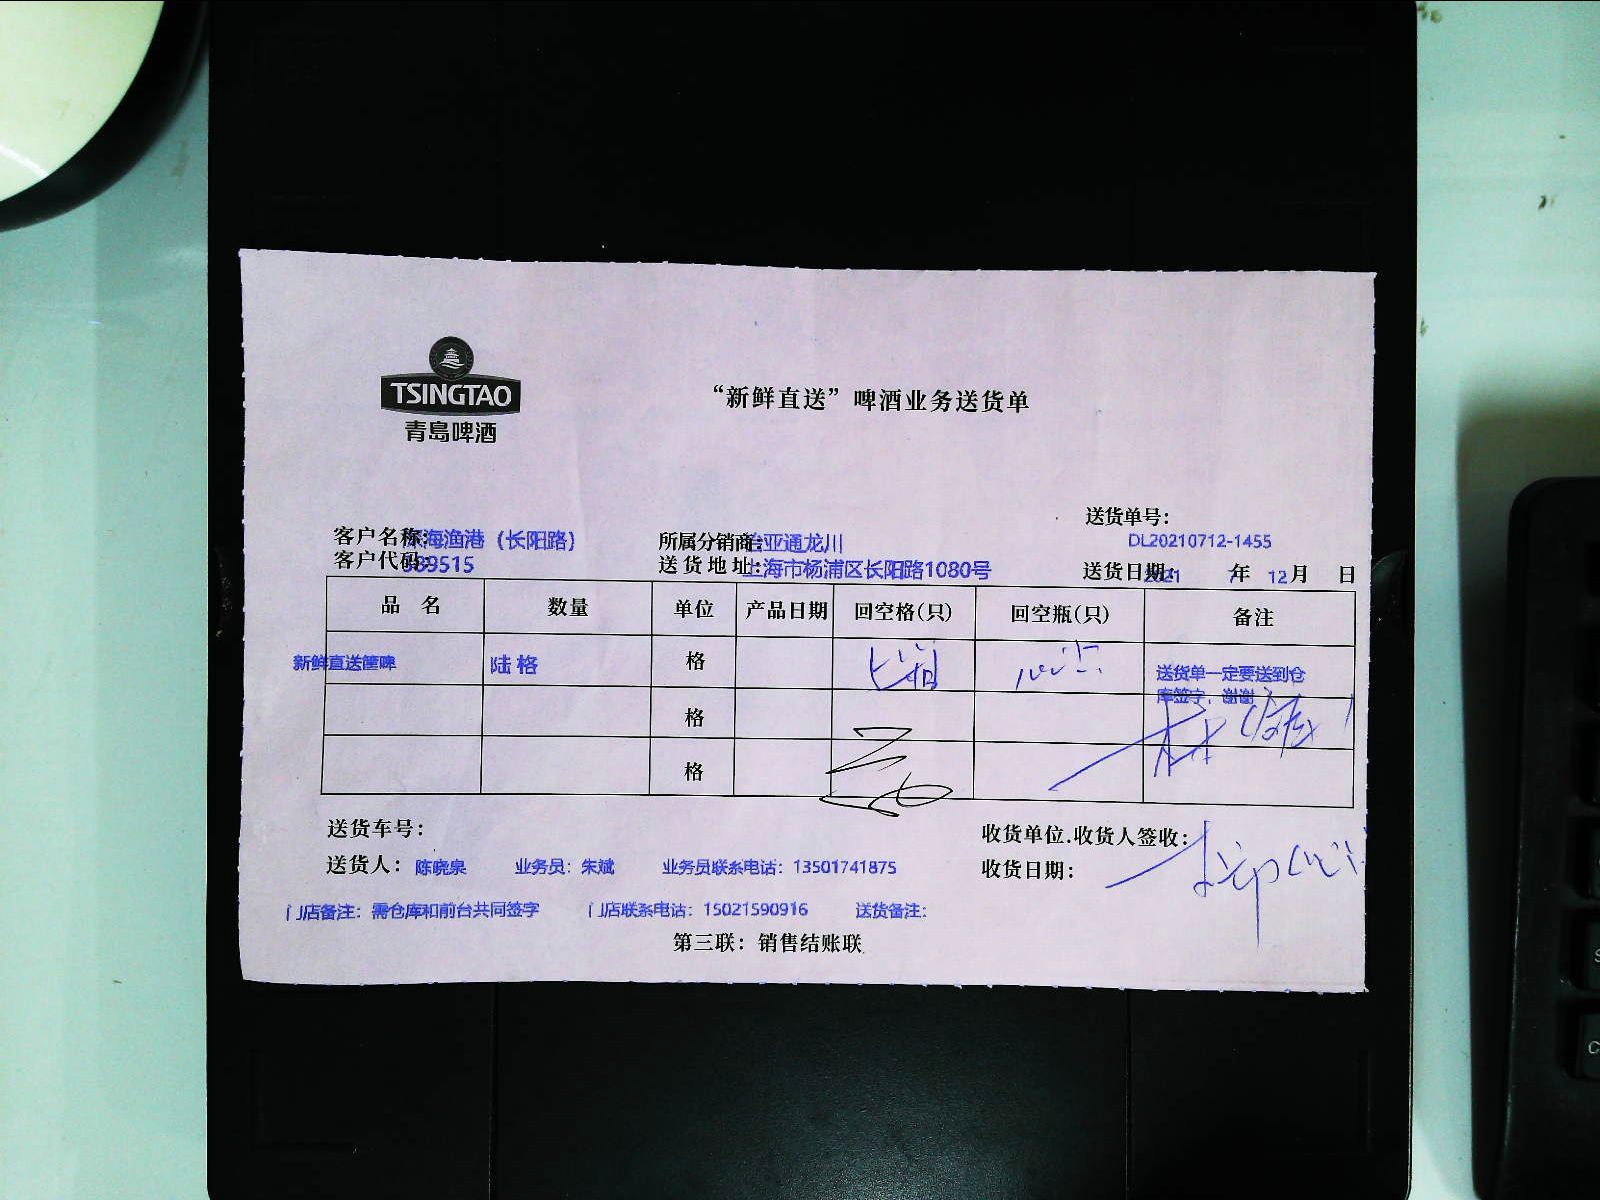 TSINGTAO
青岛啤酒
“新鲜直送”啤酒业务送货单
送货单号：
DL20210712-1455
客户名称：海渔港（长阳路） 所属分销商：亚通龙川
客户代码：589515 送货地址：上海市杨浦区长阳路1080号 送货日期：2021 年 7 12月 日
品 名 数量 单位 产品日期 回空格(只) 回空瓶(只) 备注
新鲜直送筐啤 陆格 格 送货单一定要送到仓
库签字，谢谢
格
格
送货车号： 收货单位.收货人签收：
送货人：陈晓泉 业务员：朱斌 业务员联系电话：13501741875 收货日期：
门店备注：需仓库和前台共同签字 门店联系电话：15021590916 送货备注：
第三联：销售结账联